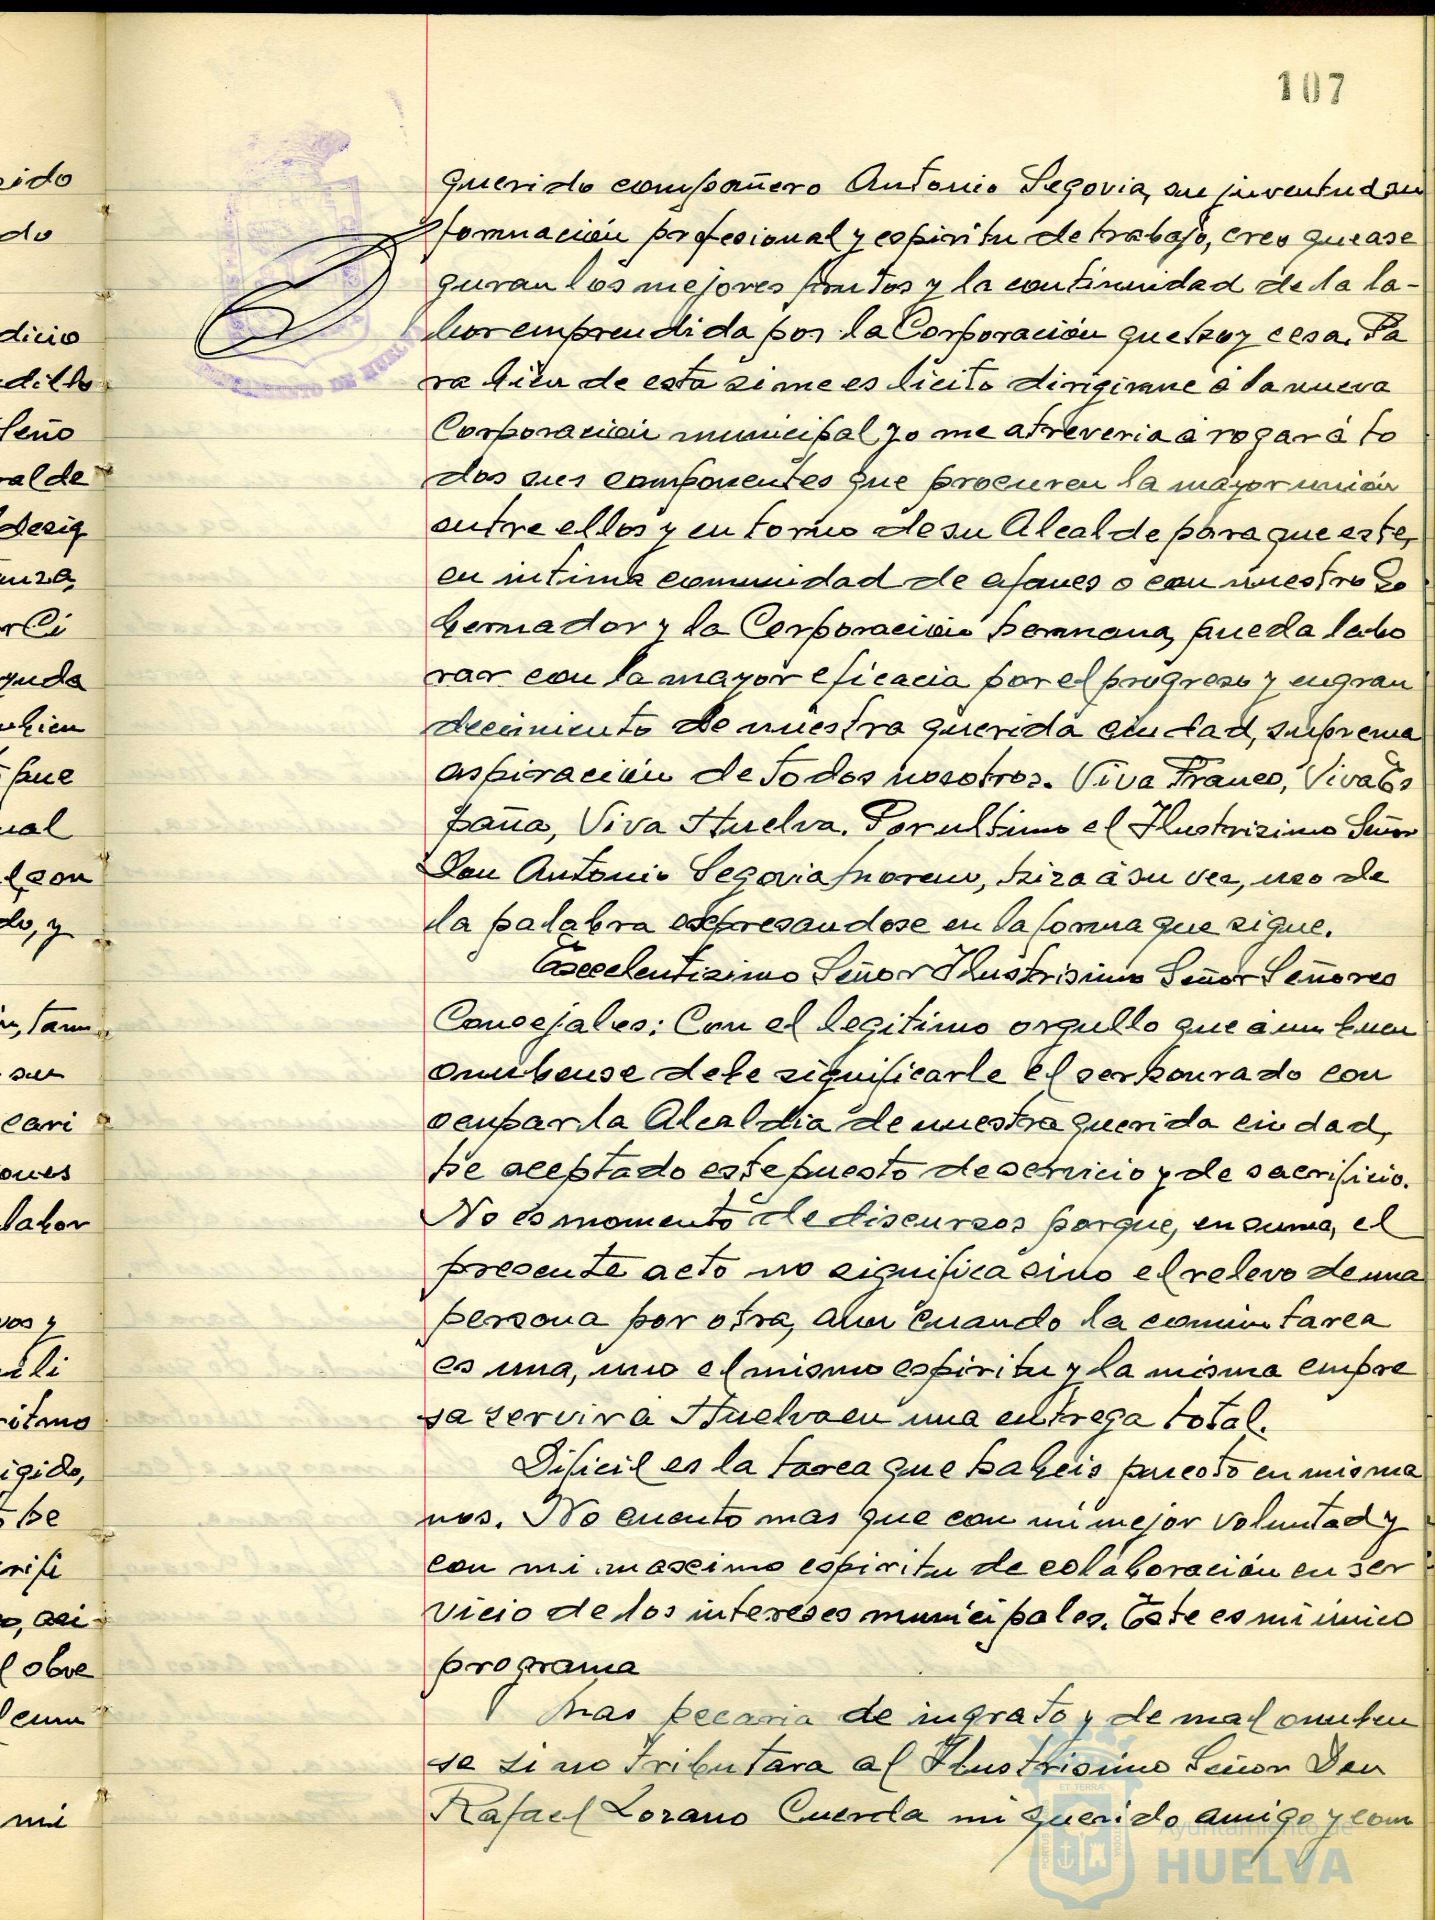 107
querido compañero Antonio Segovia, su juventud su
formación profesional y espiritu de trabajo, creo que ase
guran los mejores frutos y la continuidad de la la-
bor emprendida por la Corporación que hoy cesa. Pa
ra bien de esta si me es licito dirigirme á la nueva
Corporación municipal yo me atreveria á rogar á to
dos sus componentes que procuren la mayor unión
entre ellos y en torno de su Alcalde para que este,
en intima comunidad de afanes con nuestro Go
bernador y la Corporación hermana, pueda labo
rar con la mayor eficacia por el progreso y engran
decimiento de nuestra querida ciudad, suprema
aspiración de todos nosotros. Viva Franco, Viva Es
paña, Viva Huelva. Por ultimo el Ilustrisimo Señor
Don Antonio Segovia Moreno, hizo á su vez, uso de
la palabra expresandose en la forma que sigue.
Excelentisimo Señor Ilustrisimo Señor Señores
Concejales: Con el legitimo orgullo que á un buen
onubense debe significarle el ser honrado con
ocupar la Alcaldia de nuestra querida ciudad,
he aceptado este puesto de servicio y de sacrificio.
No es momento de discursos porque, en suma, el
presente acto no significa sino el relevo de una
persona por otra, aun cuando la comun tarea
es una, uno el mismo espiritu y la misma empre
sa servir á Huelva en una entrega total.
Dificil es la tarea que habeis puesto en mis ma
nos. No cuento mas que con mi mejor voluntad y
con mi maximo espiritu de colaboración en ser
vicio de los intereses municipales. Este es mi único
programa
Mas pecaria de ingrato y de mal onuben
se si no tributara al Ilustrisimo Señor Don
Rafael Lozano Cuerda mi querido amigo y com
ido
do
dicio
dillo
leño
ral de
desig
anza,
r Ci
yuda
bien
pue
ual
con
do, y
n, tam
su
cari
ones
labor
vos y
li
ritmo
igido,
he
rifi
asi
l obre
mi
AYUNTAMIENTO DE HUELVA
ET TERRÆ
PORTUS
Ayuntamiento de
HUELVA